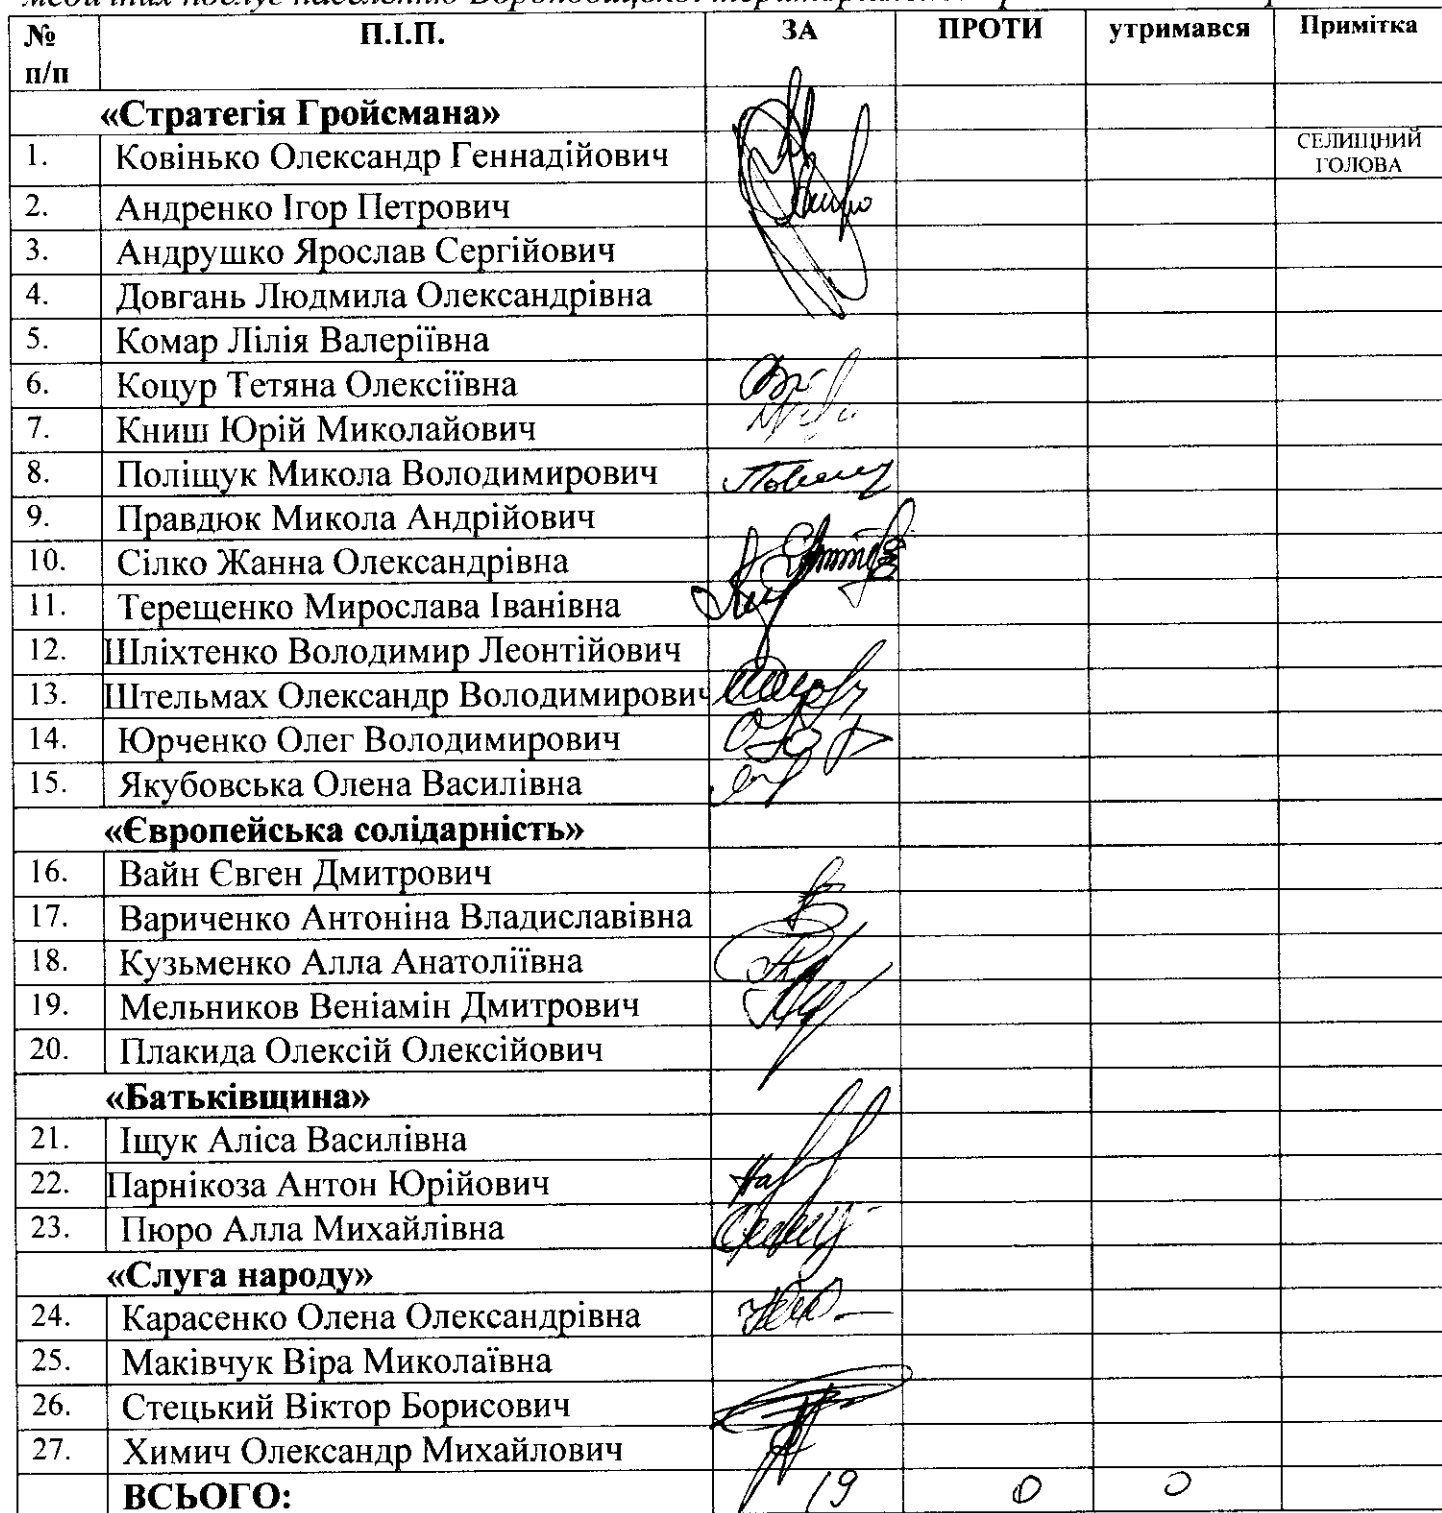 медичних послуг населенню Вороновицької територіальної
№ п/п П.І.П. ЗА ПРОТИ утримався Примітка
«Стратегія Гройсмана»
1. Ковінько Олександр Геннадійович СЕЛИЩНИЙ ГОЛОВА
2. Андренко Ігор Петрович
3. Андрушко Ярослав Сергійович
4. Довгань Людмила Олександрівна
5. Комар Лілія Валеріївна
6. Коцур Тетяна Олексіївна
7. Книш Юрій Миколайович
8. Поліщук Микола Володимирович
9. Правдюк Микола Андрійович
10. Сілко Жанна Олександрівна
11. Терещенко Мирослава Іванівна
12. Шліхтенко Володимир Леонтійович
13. Штельмах Олександр Володимирович
14. Юрченко Олег Володимирович
15. Якубовська Олена Василівна
«Європейська солідарність»
16. Вайн Євген Дмитрович
17. Вариченко Антоніна Владиславівна
18. Кузьменко Алла Анатоліївна
19. Мельников Веніамін Дмитрович
20. Плакида Олексій Олексійович
«Батьківщина»
21. Іщук Аліса Василівна
22. Парнікоза Антон Юрійович
23. Пюро Алла Михайлівна
«Слуга народу»
24. Карасенко Олена Олександрівна
25. Маківчук Віра Миколаївна
26. Стецький Віктор Борисович
27. Химич Олександр Михайлович
ВСЬОГО: 19 0 0